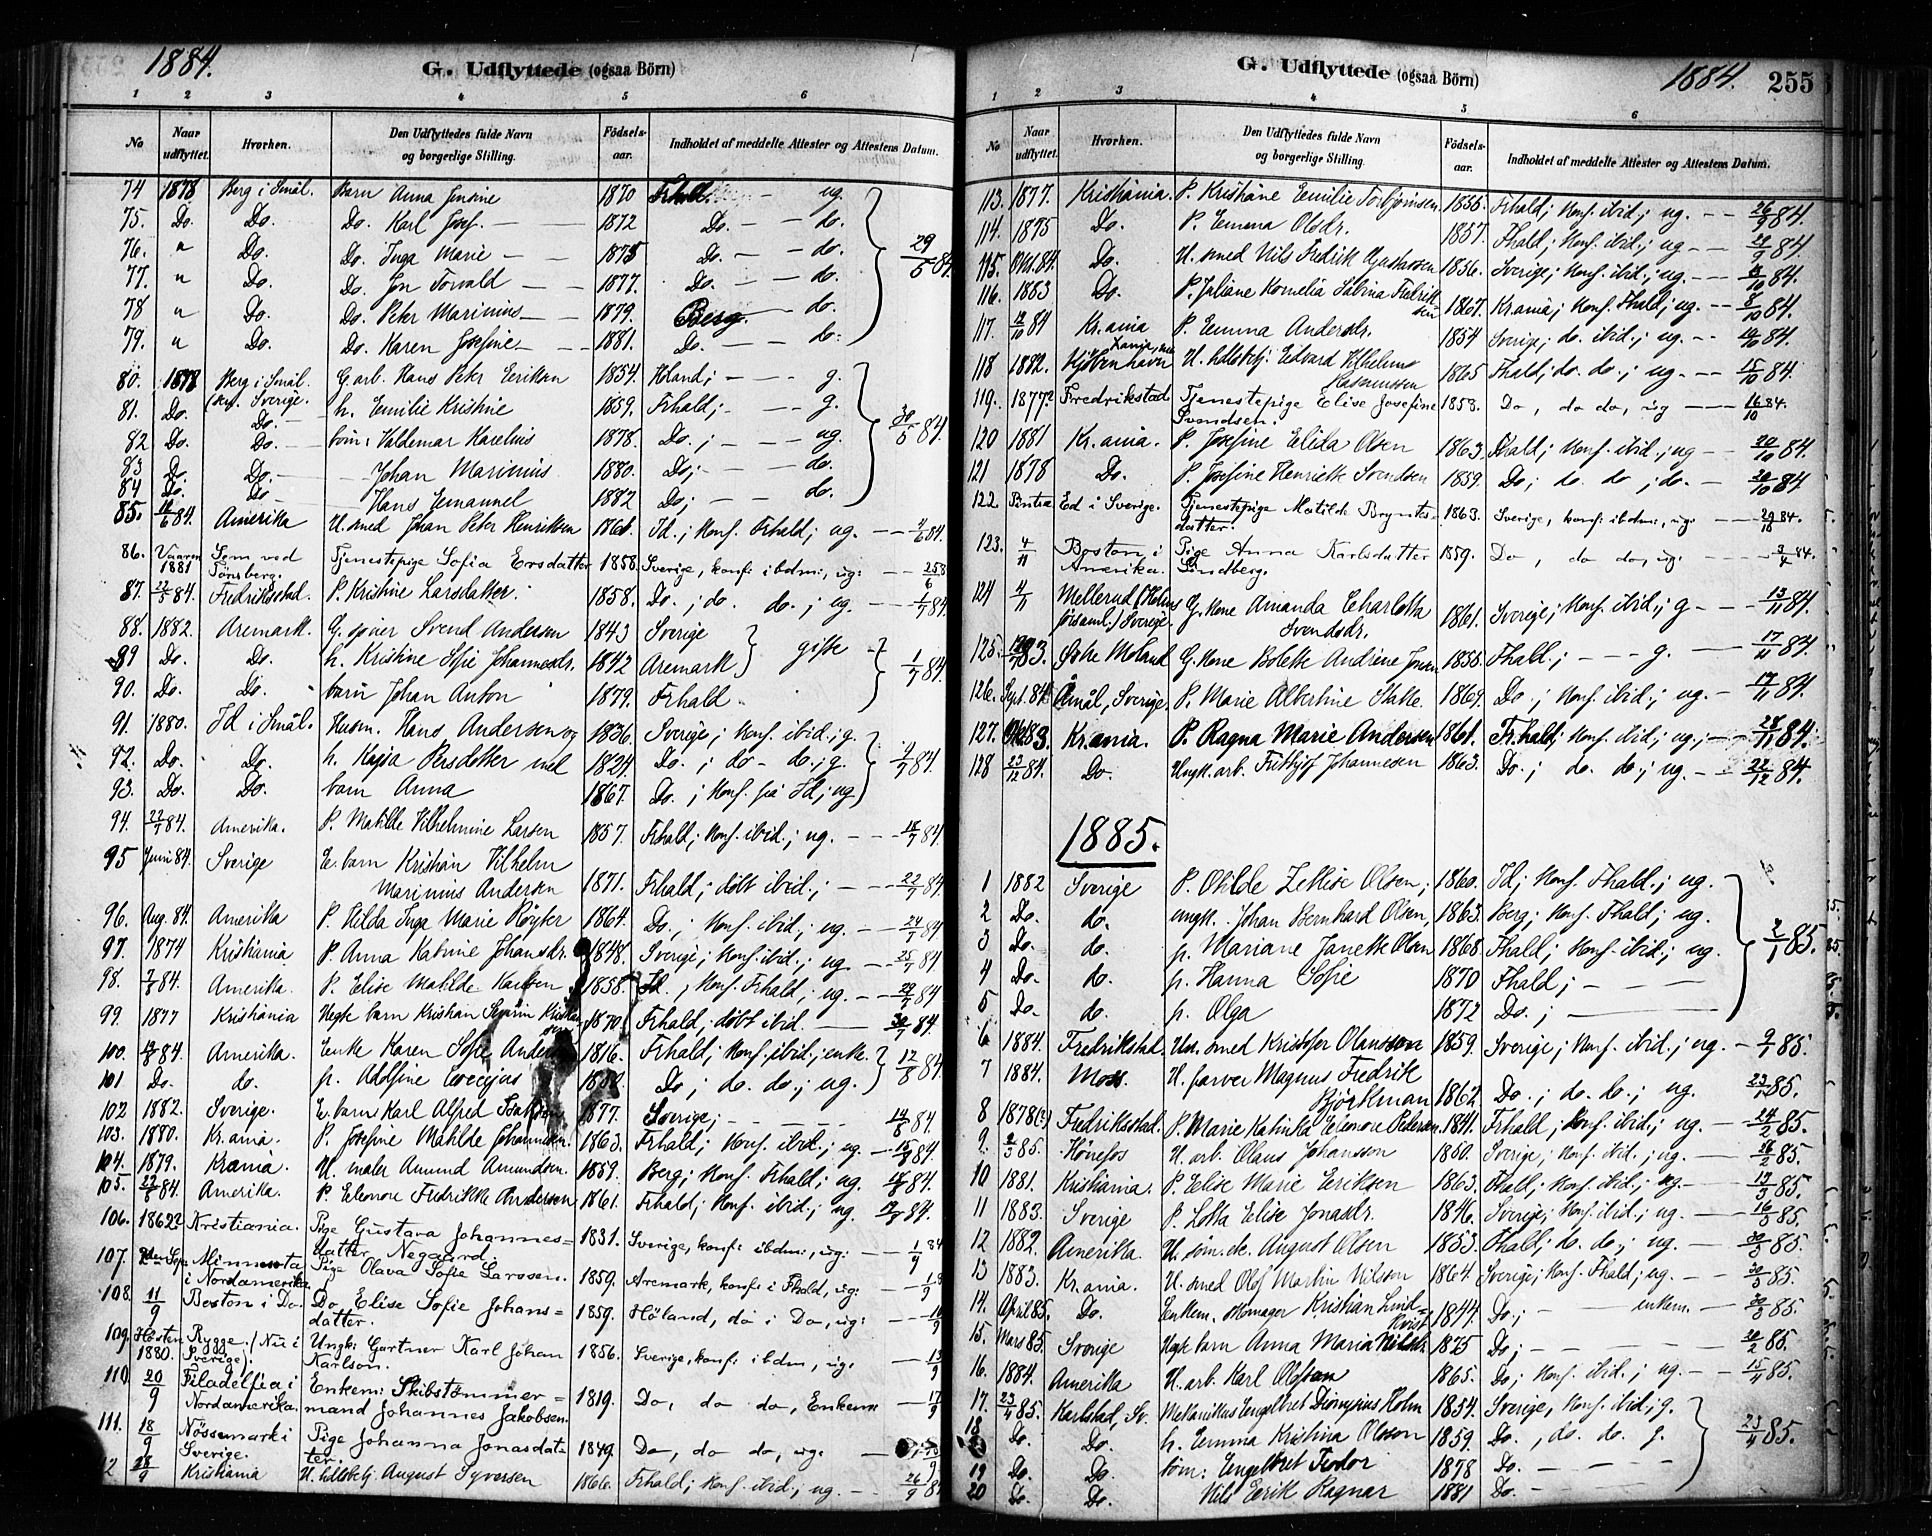 1884.
G. Udflyttede (ogsaa Börn)
1 2 3 4 5 6
No Naar udflyttet. Hvorhen. Den Udflyttedes fulde Navn og borgerlige Stilling. Födsels-aar. Indholdet af meddelte Attester og Attestens Datum.
74 1878 Berg i Smål. Barn Anna Jensine 1870 Frhald. — ug.
75. Do. Do. Do. Karl Josef. 1872 Do. — do.
76. " Do. Do. Inga Marie 1875 Do. — do. 29/5 84.
77. " Do. Do. Jon Torvald 1877. Do. — do.
78 " Do. Do. Peter Marinius 1879. Berg. — do.
79. " Do. Do. Karen Josefine 1881. Do. — do.
80. 1878 Berg i Smål. G. arb. Hans Peter Eriksen 1854. Höland; — g.
(kfr. Sverige.
81. Do. Do. h. Emilie Kristine 1859. Frhald; — g.
82 Do. Do. börn: Valdemar Karelius 1878. Do.; — ug. 84.
83 Do. Do. Johan Marinius 1880. Do; — do.
84 Do. Do Hans Emanuel 1882 Do; — do.
85. 84. Amerika U. smed Johan Peter Henriksen Id.; Konf. Frhald; ug. 84.
86. Vaaren 1881 Sem ved Tönsberg. Tjenestepige Sofia Ersdatter 1858. Sverige, konf: ibdm:, ug:
87. 84. Fredriksstad. P. Kristine Larsdatter. 1858. Do.; do. do.; ug. 1/7 84.
88. 1882. Aremark. G. spiner Svend Andersen 1843 Sverige
89 Do. Do. h. Kristine Sofie Johannesdr. 1842 Aremark } gifte 1/7 84.
90. Do. Do. barn Johan Anton 1879. Frhald
91. 1880. Id i Smål. Husm. Hans Andersen og 1836. Sverige; Konf. ibid.; g.
92. Do. Do. h. Kajsa Persdatter med 1824. Do.; do. do.; g. 84.
93. Do. Do. barn Anna 1867. Do.; Konf. frå Id; ug
94. 84. Amerika. P. Matilde Vilhelmine Larsen 1857. Frhald; Konf. ibid.; ug. 18/7 84.
95 Juni 84. Sverige E. barn Kristian Vilhelm
Marinius Andersen 1871. Frhald; döbt ibid.; 22/7 84.
96. Aug. 84. Amerika P. Hilda Inga Marie Röyser 1864. Do.; Konf. ibid.; ug. 24/7 84
97. 1874 Kristiania P. Anna Katrine Johansdr. 1848. Sverige; Konf. ibid.; ug 25/7 84
98. 84. Amerika. P. Elise Matilde Karlsen 1858. Id., Konf. Frhald; ug. 84
99. 1877 Kristiania Uegte barn Kristian Severin Kristiansen 1870. Frhald; döbt ibid. 84.
100. 84. Amerika. Enke Karen Sofie Andersen 1816. Frhald; Konf. ibid.; enke. 12/8 84.
101 Do. do. p. Adolfine Do; do. do.; ug.
102 1882. Sverige. E. barn Karl Alfred 1877. Sverige; 14/8 84.
103. 1880. Kr.ania. P. Josefine Matilde Johannesen. 1863. Frhald; Konf. ibid.; ug. 84.
104. 1879. Krania. U. maler Amund Amundsen. 1859. Berg; Konf. Frhald; ug. 84.
105. 84. Amerika. P. Eleonore Fredrikke Andersen 1861. Frhald; Konf. ibid.; ug. 84.
106. 1862? Kristiania. Pige Gustava Johannes=datter Negaard. 1831. Sverige, konf: ibdm:, ug: 1/9 84
107. Minnesota i Nordamerika. Pige Olava Sofie Larssen. 1859. Aremark, konf: i Fhald, ug:
108. 11/9 Boston i Do. Do Elise Sofie Johans=datter. 1859. Höland, do i Do, ug:
109. Hösten 1880. Rygge. (Nu i Sverige). Ungk: Gartner Karl Johan Karlson. 1856. Sverige, konf: ibdm, ug: 13/9
110. 20/9 Filadelfia i Nordamerika. Enkem: Skibstømmer=mand Johannes Jakobsen. 1819. Do, do do, Enkem 17/9
111. 18/9 Nössemark i Sverige. Pige Johanna Jonasdat=ter. 1849. Do, do do, ug:
12 28/9 Kristiania U. hdlsbetj. August Syversen 1866. Frhald; Konf. ibid.; ug. 26/9 84
G. Udflyttede (ogsaa Börn)
1884. 255
1 2 3 4 5 6
No Naar udflyttet. Hvorhen. Den Udflyttedes fulde Navn og borgerlige Stilling. Födsels-aar. Indholdet af meddelte Attester og Attestens Datum.
113. 1877. Kristiania. P. Kristiane Emilie Torbjørnsen. 1856. Frhald; Konf. ibid.; ug. 26/9 84.
114. 1875 Do. P. Emma Olsdr. 1857. Fhald; Konf. ibid.; ug 84.
115. 84. Do. U. smed Nils Fredrik Gustavssen 1856. Sverige; Konf. ibid.; ug. 84.
116. 1883 Do. P. Juliane Kornelia Sabina Fredriksen 1867. Kr.ania; Konf. Fhald; ug. 8/10 84.
117. 84 Kr.ania P. Emma Andersdr. 1854 Sverige; do. ibid.; ug. 84.
118 1882. Kjöbenhavn U. hdlsbetj. Edvard Vilhelm Rasmussen 1865 Fhald; do. do.; ug. 15/10 84.
119. 1877? Fredrikstad. Tjenestepige Elise Josefine Svendsen. 1858. Do, do do, ug 16/10 84.
120 1881 Kr.ania. P. Josefine Elida Olsen 1863. Fhald; Konf. ibid.; ug 20/10 84.
121 1878 Do. P. Josefine Henriette Svendsen 1859. Do; do. do; do. 20/10 84
122 Ed i Sverige. Tjenestepige Matilde Bryntes=datter. 1863. Sverige, konf: ibdm:, ug: 29/10 84.
123. 4/11 Boston i Amerika. Pige Anna Karlsdatter Lindberg. 1859. Do, do do, ug: 84.
124 4/11 Mellerud (Holms församl.) Sverige. G. kone Amanda Charlotte Svendsdr. 1861. Sverige; Konf. ibid.; g 13/11 84.
125. 83. Östre Moland G. Kone Bolette Andrine Jensen 1858. Fhald.; g. 17/11 84.
126. Sept. 84 Åmål, Sverige. P. Marie Albertine Statte. 1864. Do.; Konf. ibid.; ug. 17/11 84.
127. 83. Kr.ania. P. Ragna Marie Andersen 1861. Fr.hald; Konf. ibid.; ug.; 28/11 84.
128 23/12 84. Do. Ungk. arb. Frithjof Johannesen 1863. Do.; do. do.; ug. 22/12 84.
1885.
1 1882 Sverige P. Otilde Zellise Olsen; 1860. Id; Konf. Fhald.; ug.
2 Do. do. ungk. Johan Bernhard Olsen 1863. Berg; Konf. Fhald; ug.
3 Do. do. p. Mariane Janette Olsen 1868. Fhald; Konf. ibid.; ug. 2/1 85.
4 Do. do. p. Hanna Sofie 1870 Fhald;
5 Do. do. p. Olga 1872 Do.;
6 1884. Fredrikstad. Un. smed Kristofer Olausson 1859. Sverige; Konf. ibid.; ug. 9/1 85.
7 1884. Moss. U. farver Magnus Fredrik Björkman 1862 Do.; do. do.; ug. 85.
8 1878(?) Fredriksstad. P. Marie Katinka Eleonore Pedersen. 1841. Frhald; Konf. ibid.; ug. 24/2 85.
9. 85. Hönefos U. arb. Olaus Johansson 1850. Sverige; Konf. ibid.; ug. 26/2 85.
10 1881. Kristiania. P. Elise Marie Eriksen 1863. Fhald; Konf. ibid.; ug 13/3 85.
11 1883. Sverige P. Lotta Elise Jonasdr. 1846. Sverige; Konf. ibid.; ug. 16/3 85.
12 1882. Amerika. U. söm. dr. August Olsen 1853. Fhald; do. do.; ug. 85.
13 1883. Kr.ania. U. smed Olof Martin Nilsson 1864. Sverige; Konf. Fhald; ug. 85.
14. April 85. Do. Enkem. Kristian Lind=kvist 1844. Do.; enkem. 85.
15. Mars 85. Sverige Uegte barn Anna Maria 1875 Do; 85.
16. 1884. Amerika U. arb. Karl Olofson 1865. Do; Konf. ibid.; ug. 15/4 85.
17. 23/4 85. Karlstad, Sv. Mekanikus Engelbret Dionysius Holm 1854. Sverige, Konf. ibid.; g.
18 Do. Do. h. Emma Kristina Olsson 1859. Do., do. do. g. 23/4 85.
19 Do. Do. söm: Engelbret Teodor 1878 Do.
20 Do. Do. Nils Erik Ragnar 1881 Do.